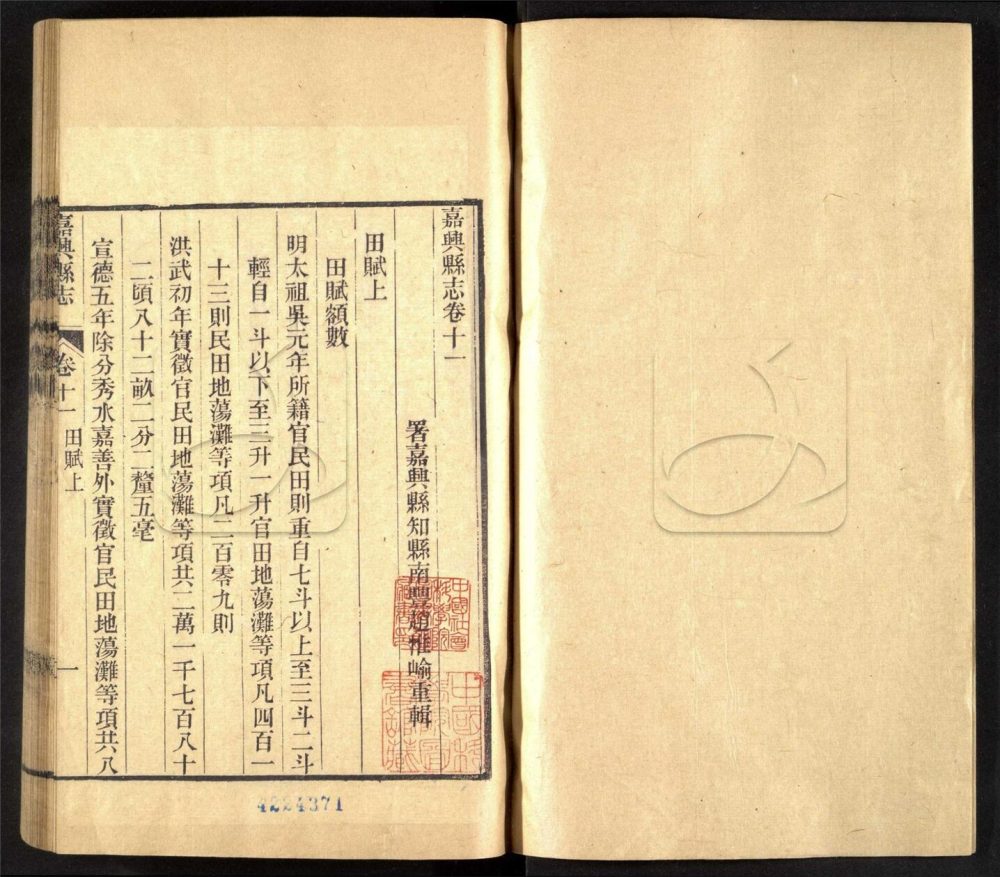 嘉興縣志卷十一
署嘉興縣知縣南豐趙惟崳重輯
田賦上
田賦額數
明太祖吳元年所籍官民田則重自七斗以上至三斗二斗
輕自一斗以下至三升一升官田地蕩灘等項凡四百一
十三則民田地蕩灘等項凡二百零九則
洪武初年實徵官民田地蕩灘等項共二萬一千七百八十
二頃八十二畝二分二釐五毫
宣德五年除分秀水嘉善外實徵官民田地蕩灘等項共八
嘉興縣志
卷十一
田賦上
一
4224371